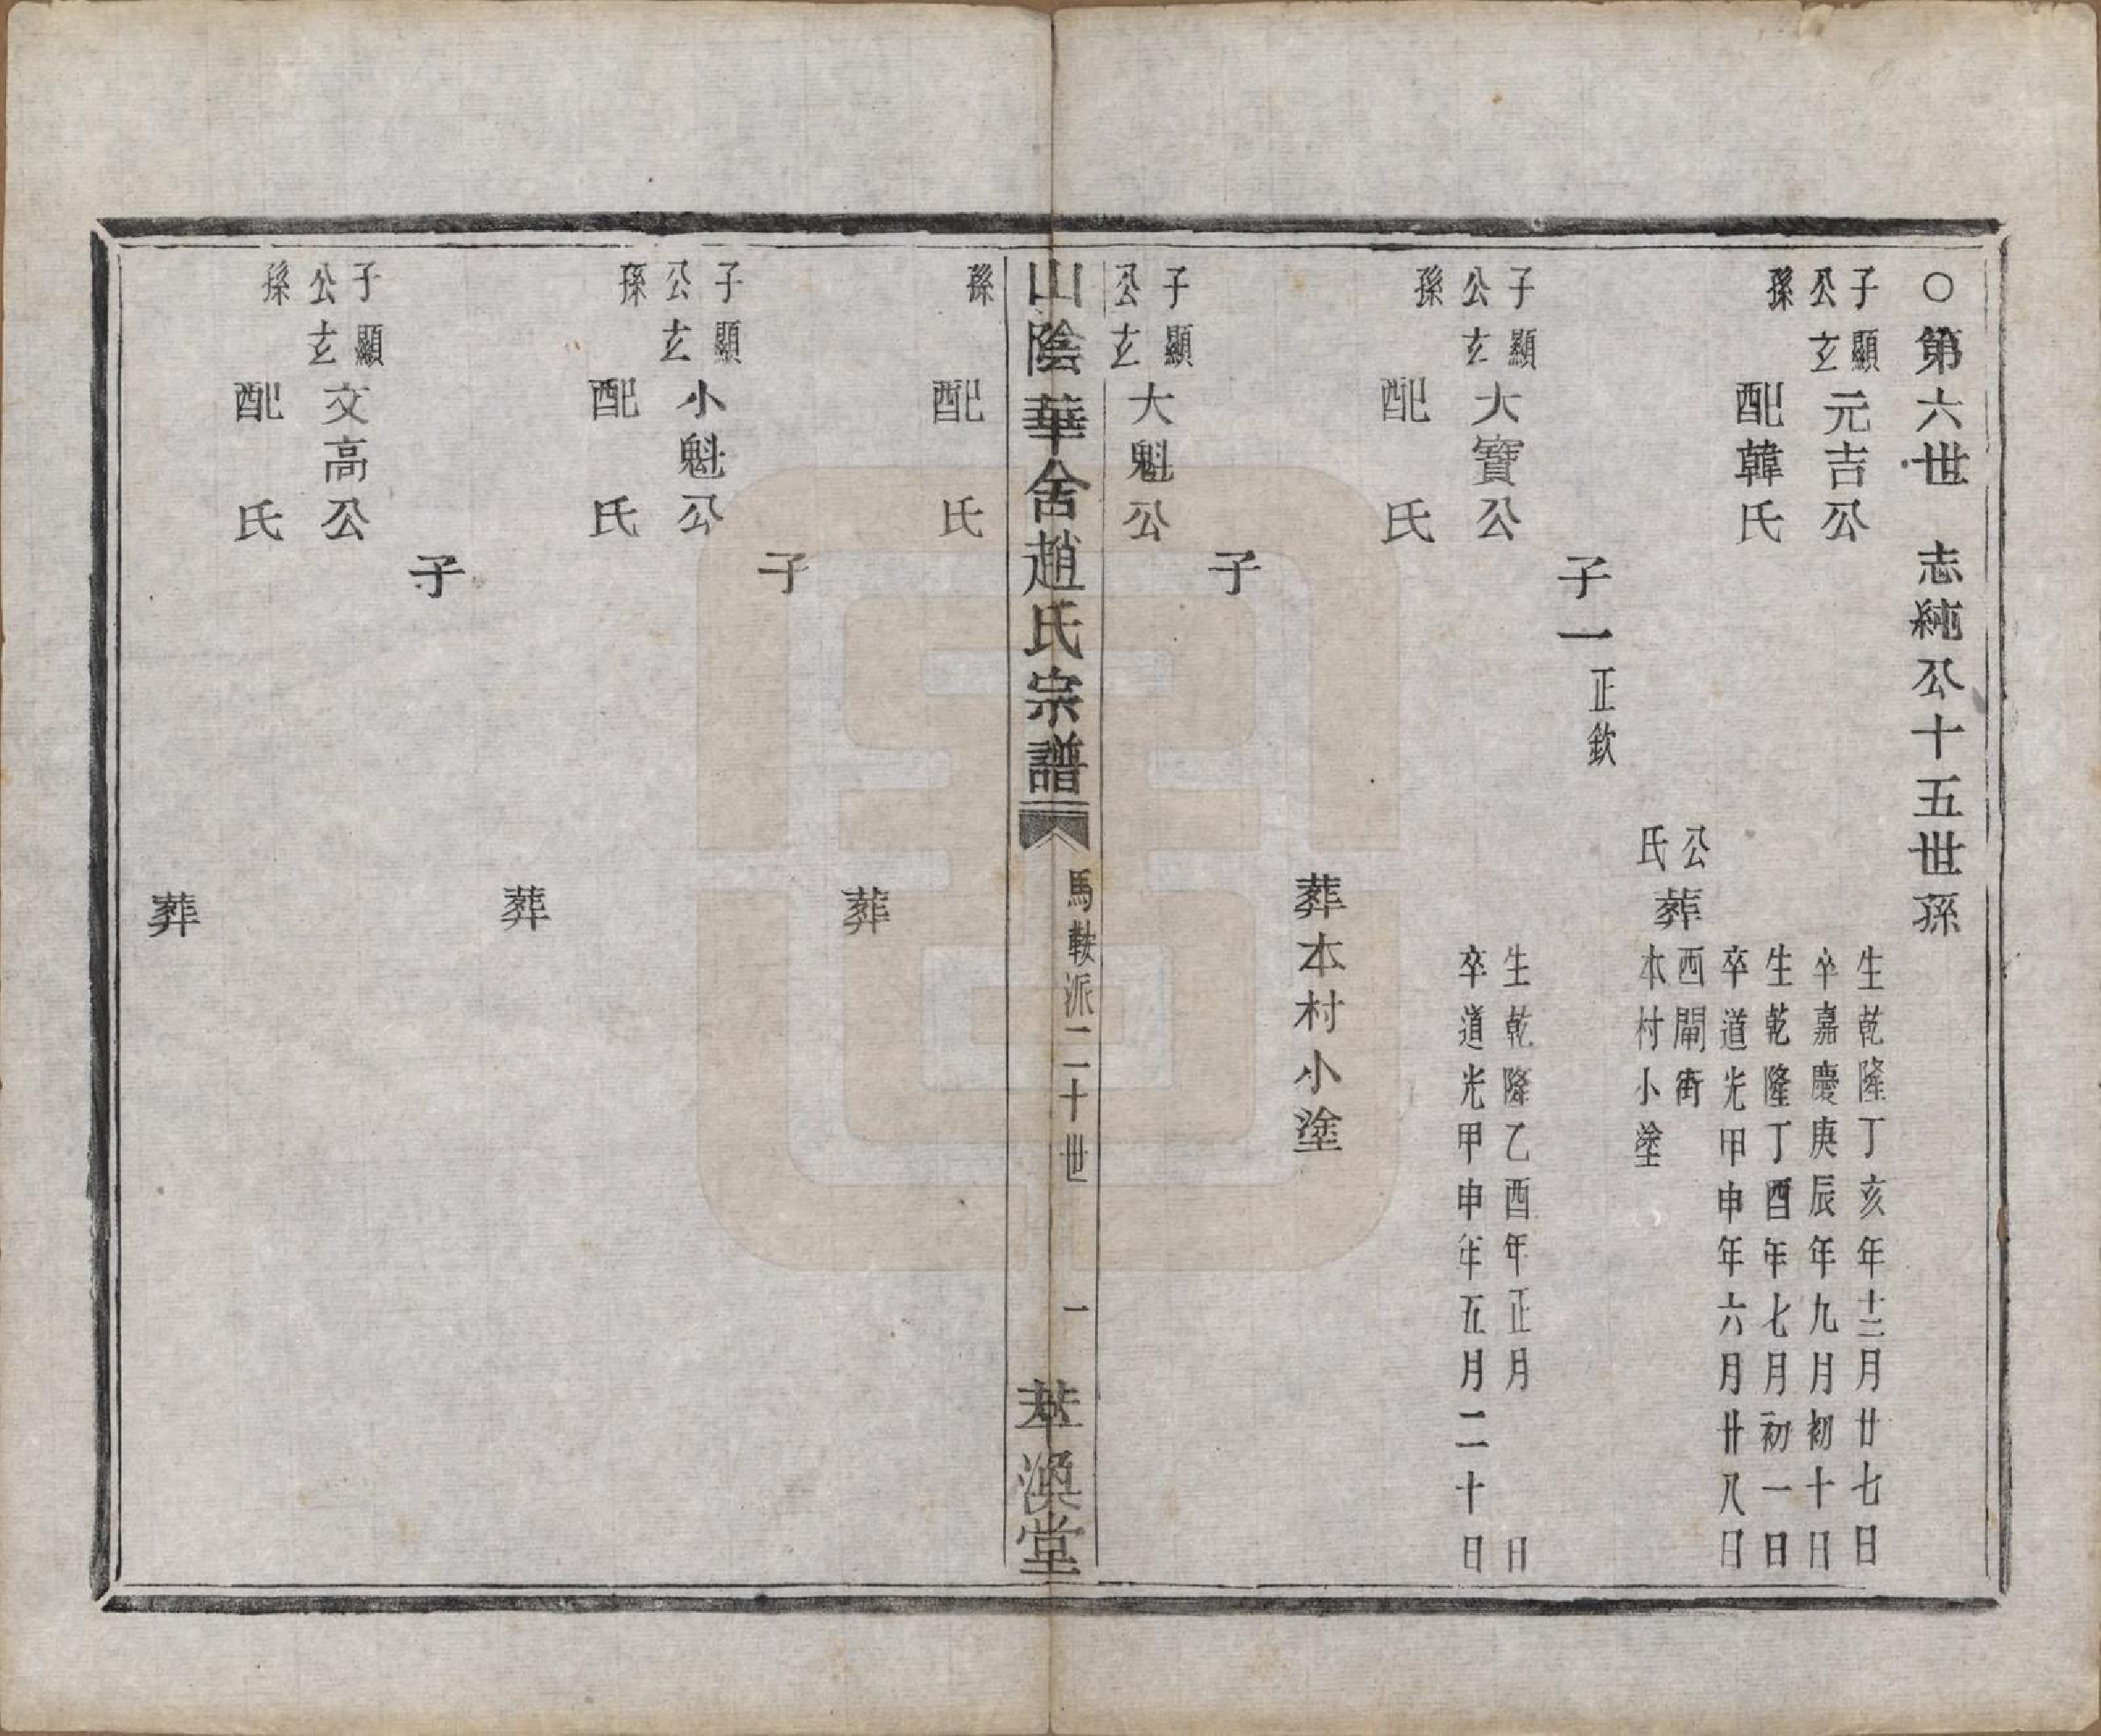 ○第六世　志純公十五世孫
子顯公玄孫
元吉公
生乾隆丁亥年十二月廿七日
卒嘉慶庚辰年九月初十日
配韓氏
生乾隆丁酉年七月初一日
卒道光甲申年六月廿八日
公氏葬
西閘衖
本村小塗
子一正欽
子顯公玄孫
大寶公
生乾隆乙酉年正月　日
卒道光甲申年五月二十日
配　氏
葬本村小塗
子
子顯公玄
大魁公
山陰華舍趙氏宗譜　馬鞍派二十世　一　萃渙堂
孫
配　氏
葬
子
子顯公玄孫
小魁公
配　氏
葬
子
子顯公玄孫
文高公
配　氏
葬